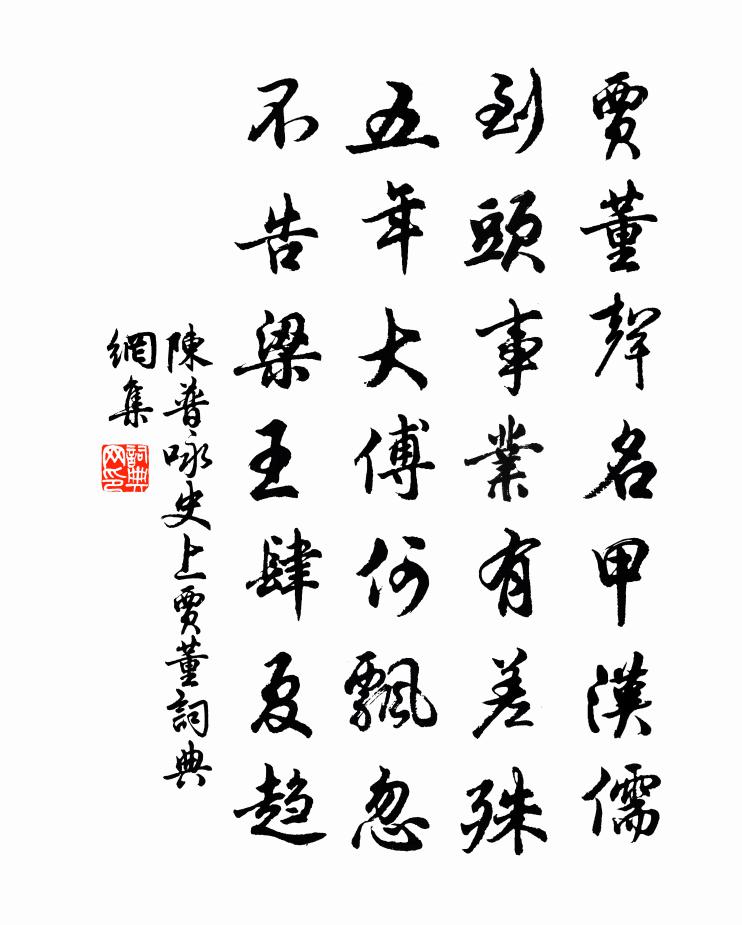 賈董聲名甲漢儒
到頭事業有差殊
五年大傅何飄忽
不告梁王肆夏趨
陳普咏史上賈董詞典
網集
詞典
网印